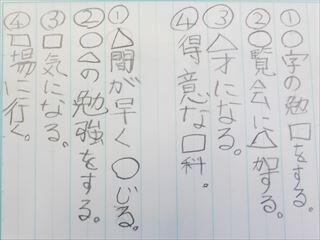 ①〇字の勉□をする。
②〇覧会に△加する。
③△才になる。
④得意な□科。
①△間が早く〇じる。
②〇△の勉強をする。
③□気になる。
④□場に行く。